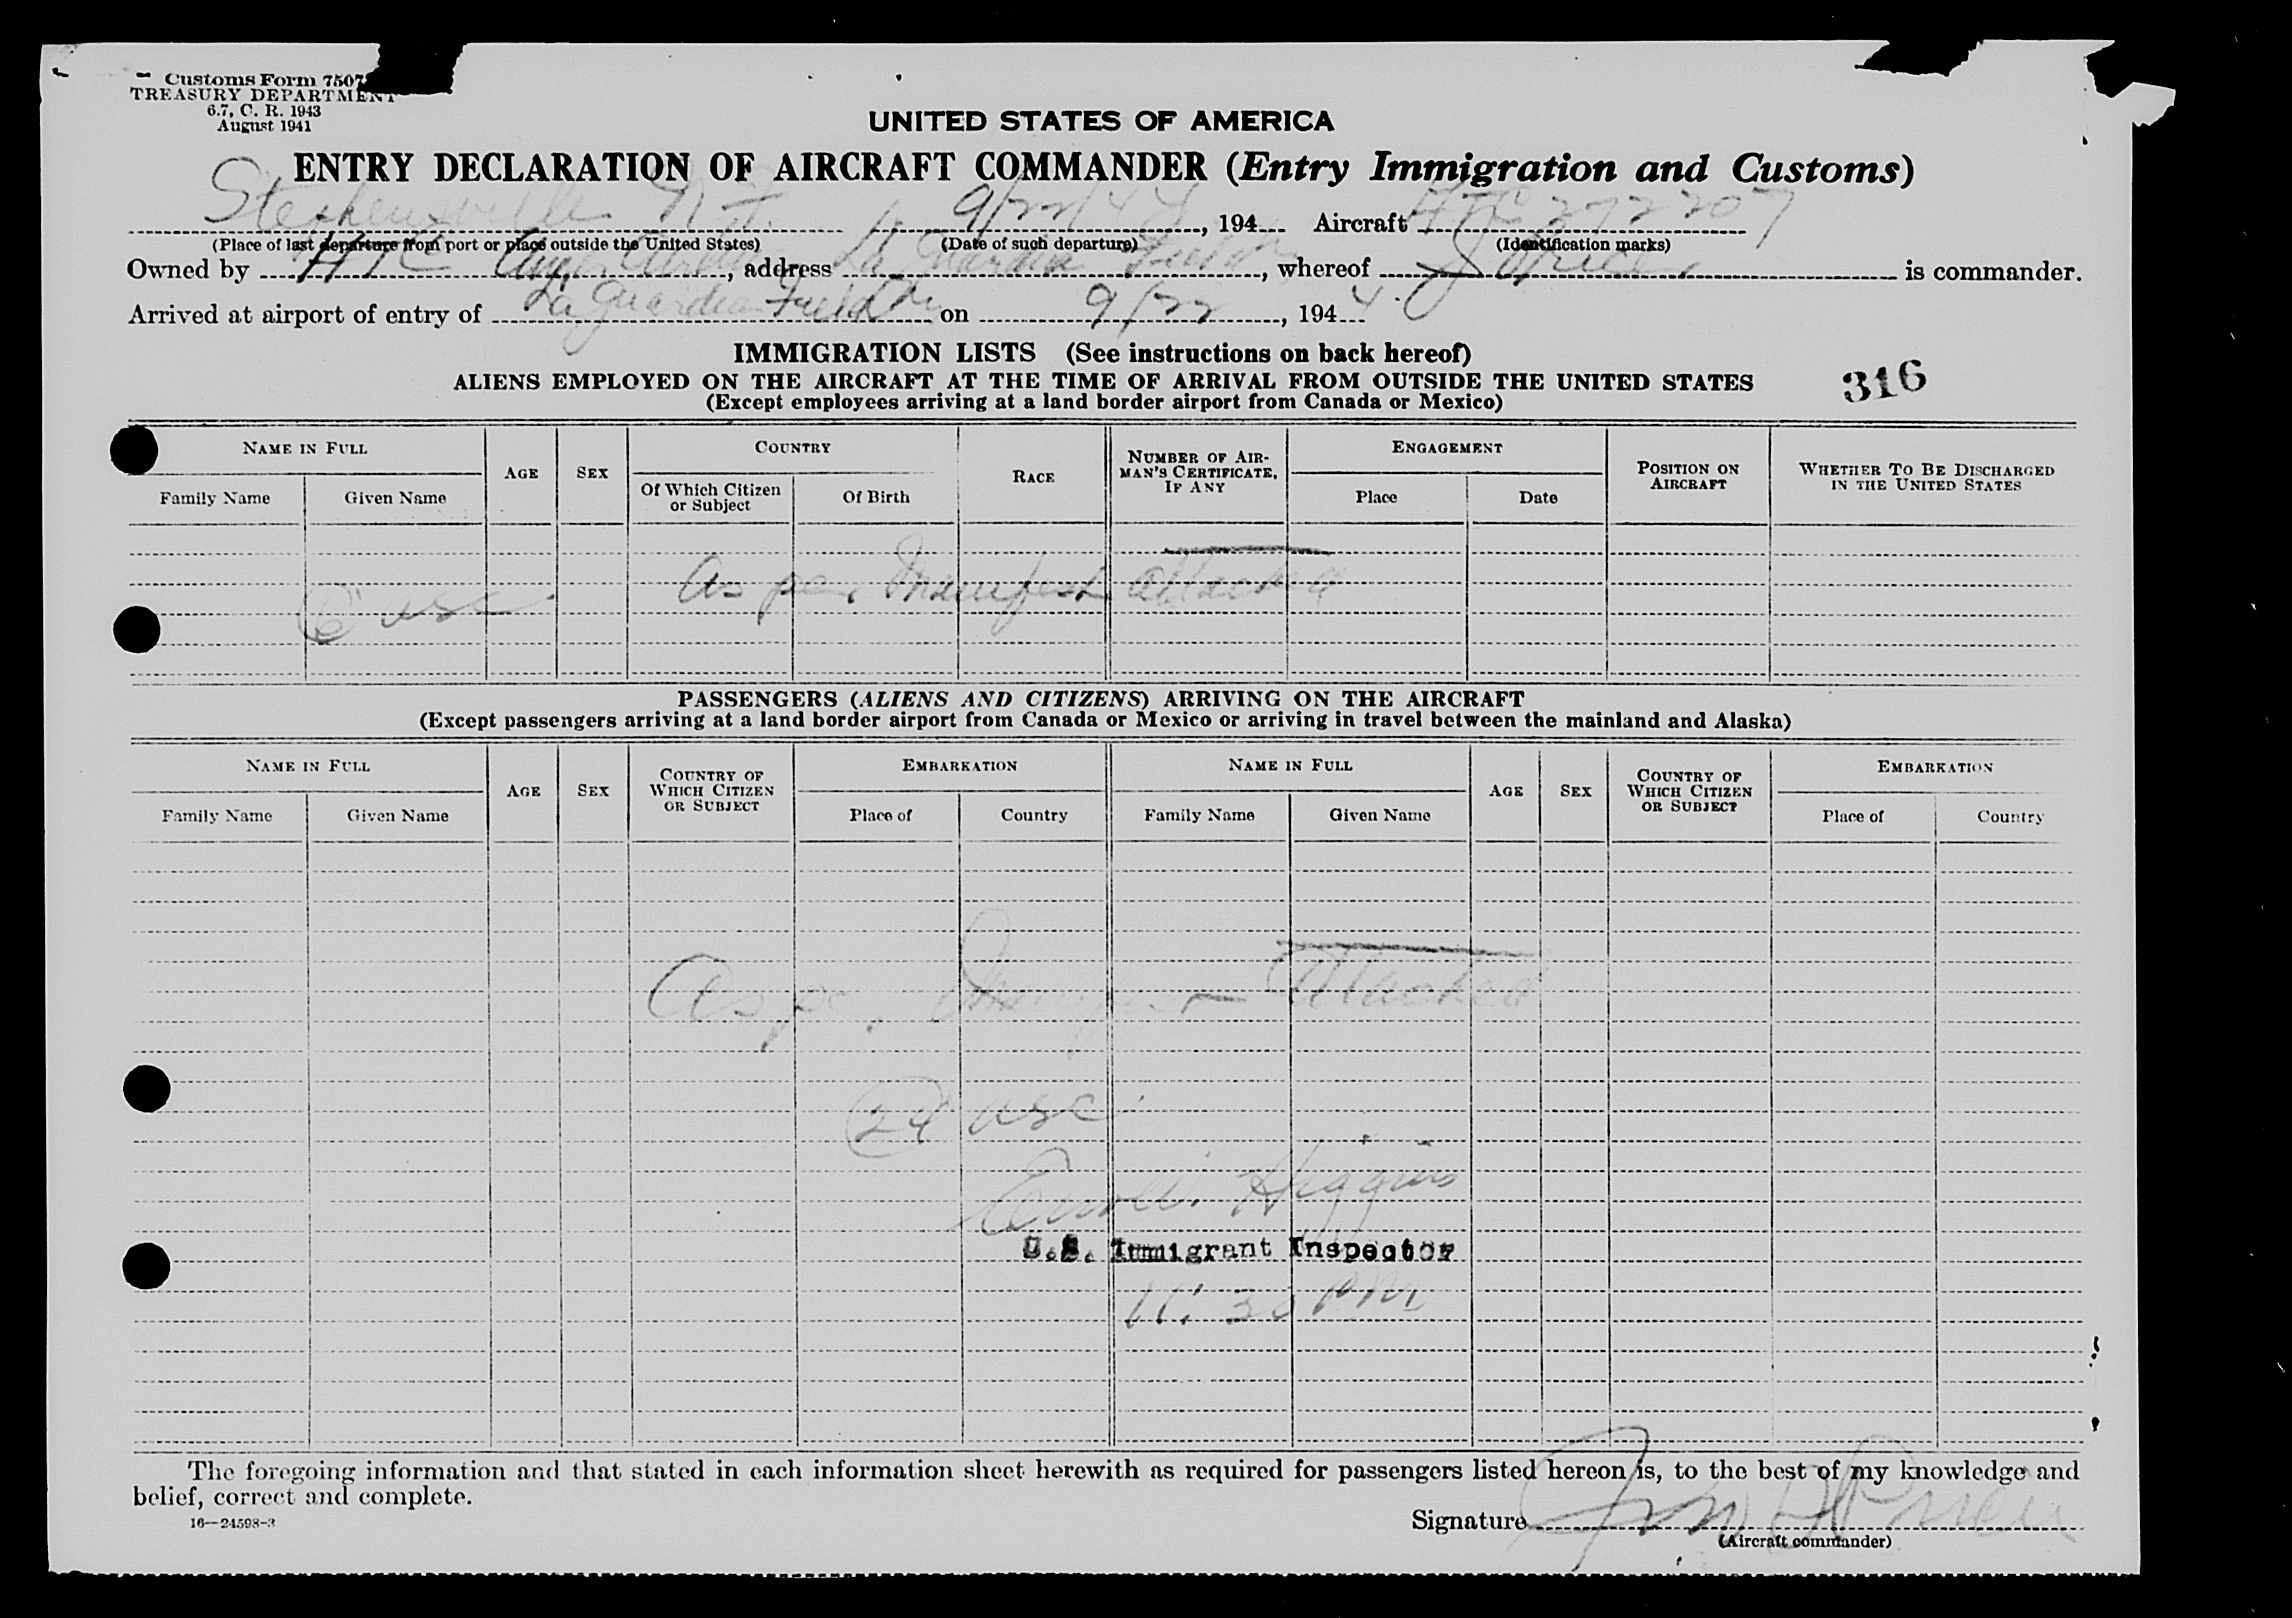 Customs Form 7507
TREASURY DEPARTMENT
6.7, C. R. 1943
August 1941
UNITED STATES OF AMERICA
ENTRY DECLARATION OF AIRCRAFT COMMANDER (Entry Immigration and Customs)
Stephenville N.F. 9/22/44, 194 Aircraft ATC 272207
(Place of last departure from port or place outside the United States) (Date of such departure) (Identification marks)
Owned by ATC , address La Guardia Field, whereof J Price is commander.
Arrived at airport of entry of La Guardia Field NY on 9/22, 1944.
IMMIGRATION LISTS (See instructions on back hereof)
ALIENS EMPLOYED ON THE AIRCRAFT AT THE TIME OF ARRIVAL FROM OUTSIDE THE UNITED STATES
316
(Except employees arriving at a land border airport from Canada or Mexico)
NAME IN FULL AGE SEX COUNTRY RACE NUMBER OF AIRMAN'S CERTIFICATE, IF ANY ENGAGEMENT POSITION ON AIRCRAFT WHETHER TO BE DISCHARGED IN THE UNITED STATES
Family Name Given Name Of Which Citizen or Subject Of Birth Place Date
As per Manifest attached
6 usc
PASSENGERS (ALIENS AND CITIZENS) ARRIVING ON THE AIRCRAFT
(Except passengers arriving at a land border airport from Canada or Mexico or arriving in travel between the mainland and Alaska)
NAME IN FULL AGE SEX COUNTRY OF WHICH CITIZEN OR SUBJECT EMBARKATION NAME IN FULL AGE SEX COUNTRY OF WHICH CITIZEN OR SUBJECT EMBARKATION
Family Name Given Name Place of Country Family Name Given Name Place of Country
As per Manifest Attached
24 usc
Higgins
U.S. Immigrant Inspector
11:30 PM
The foregoing information and that stated in each information sheet herewith as required for passengers listed hereon is, to the best of my knowledge and
belief, correct and complete.
16—24598-3
Signature
(Aircraft commander)